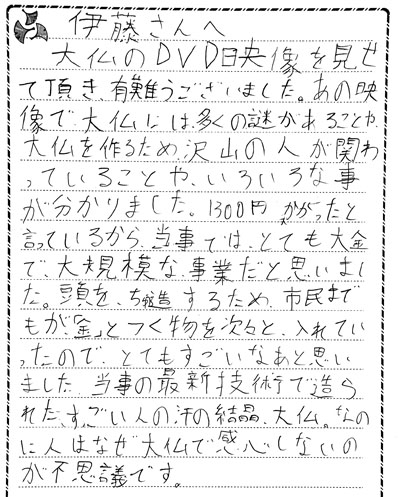 伊藤さんへ
大仏のDVD映像を見せ
て頂き、有難うございました。あの映
像で、大仏には、多くの謎があることや、
大仏を作るため、沢山の人が関わ
っていることや、いろいろな事
が分かりました。1300円かかったと
言っているから、当事では、とても大金
で、大規模な、事業だと思いまし
た。頭を、造するため、市民まで
もが、「金」とつく物を次々と、入れてい
ったので、とてもすごいなあと思い
ました。当事の最新技術で造ら
れた、すごい人の汗の結晶、大仏。なの
に人はなぜ大仏で感心しないの
が不思議です。